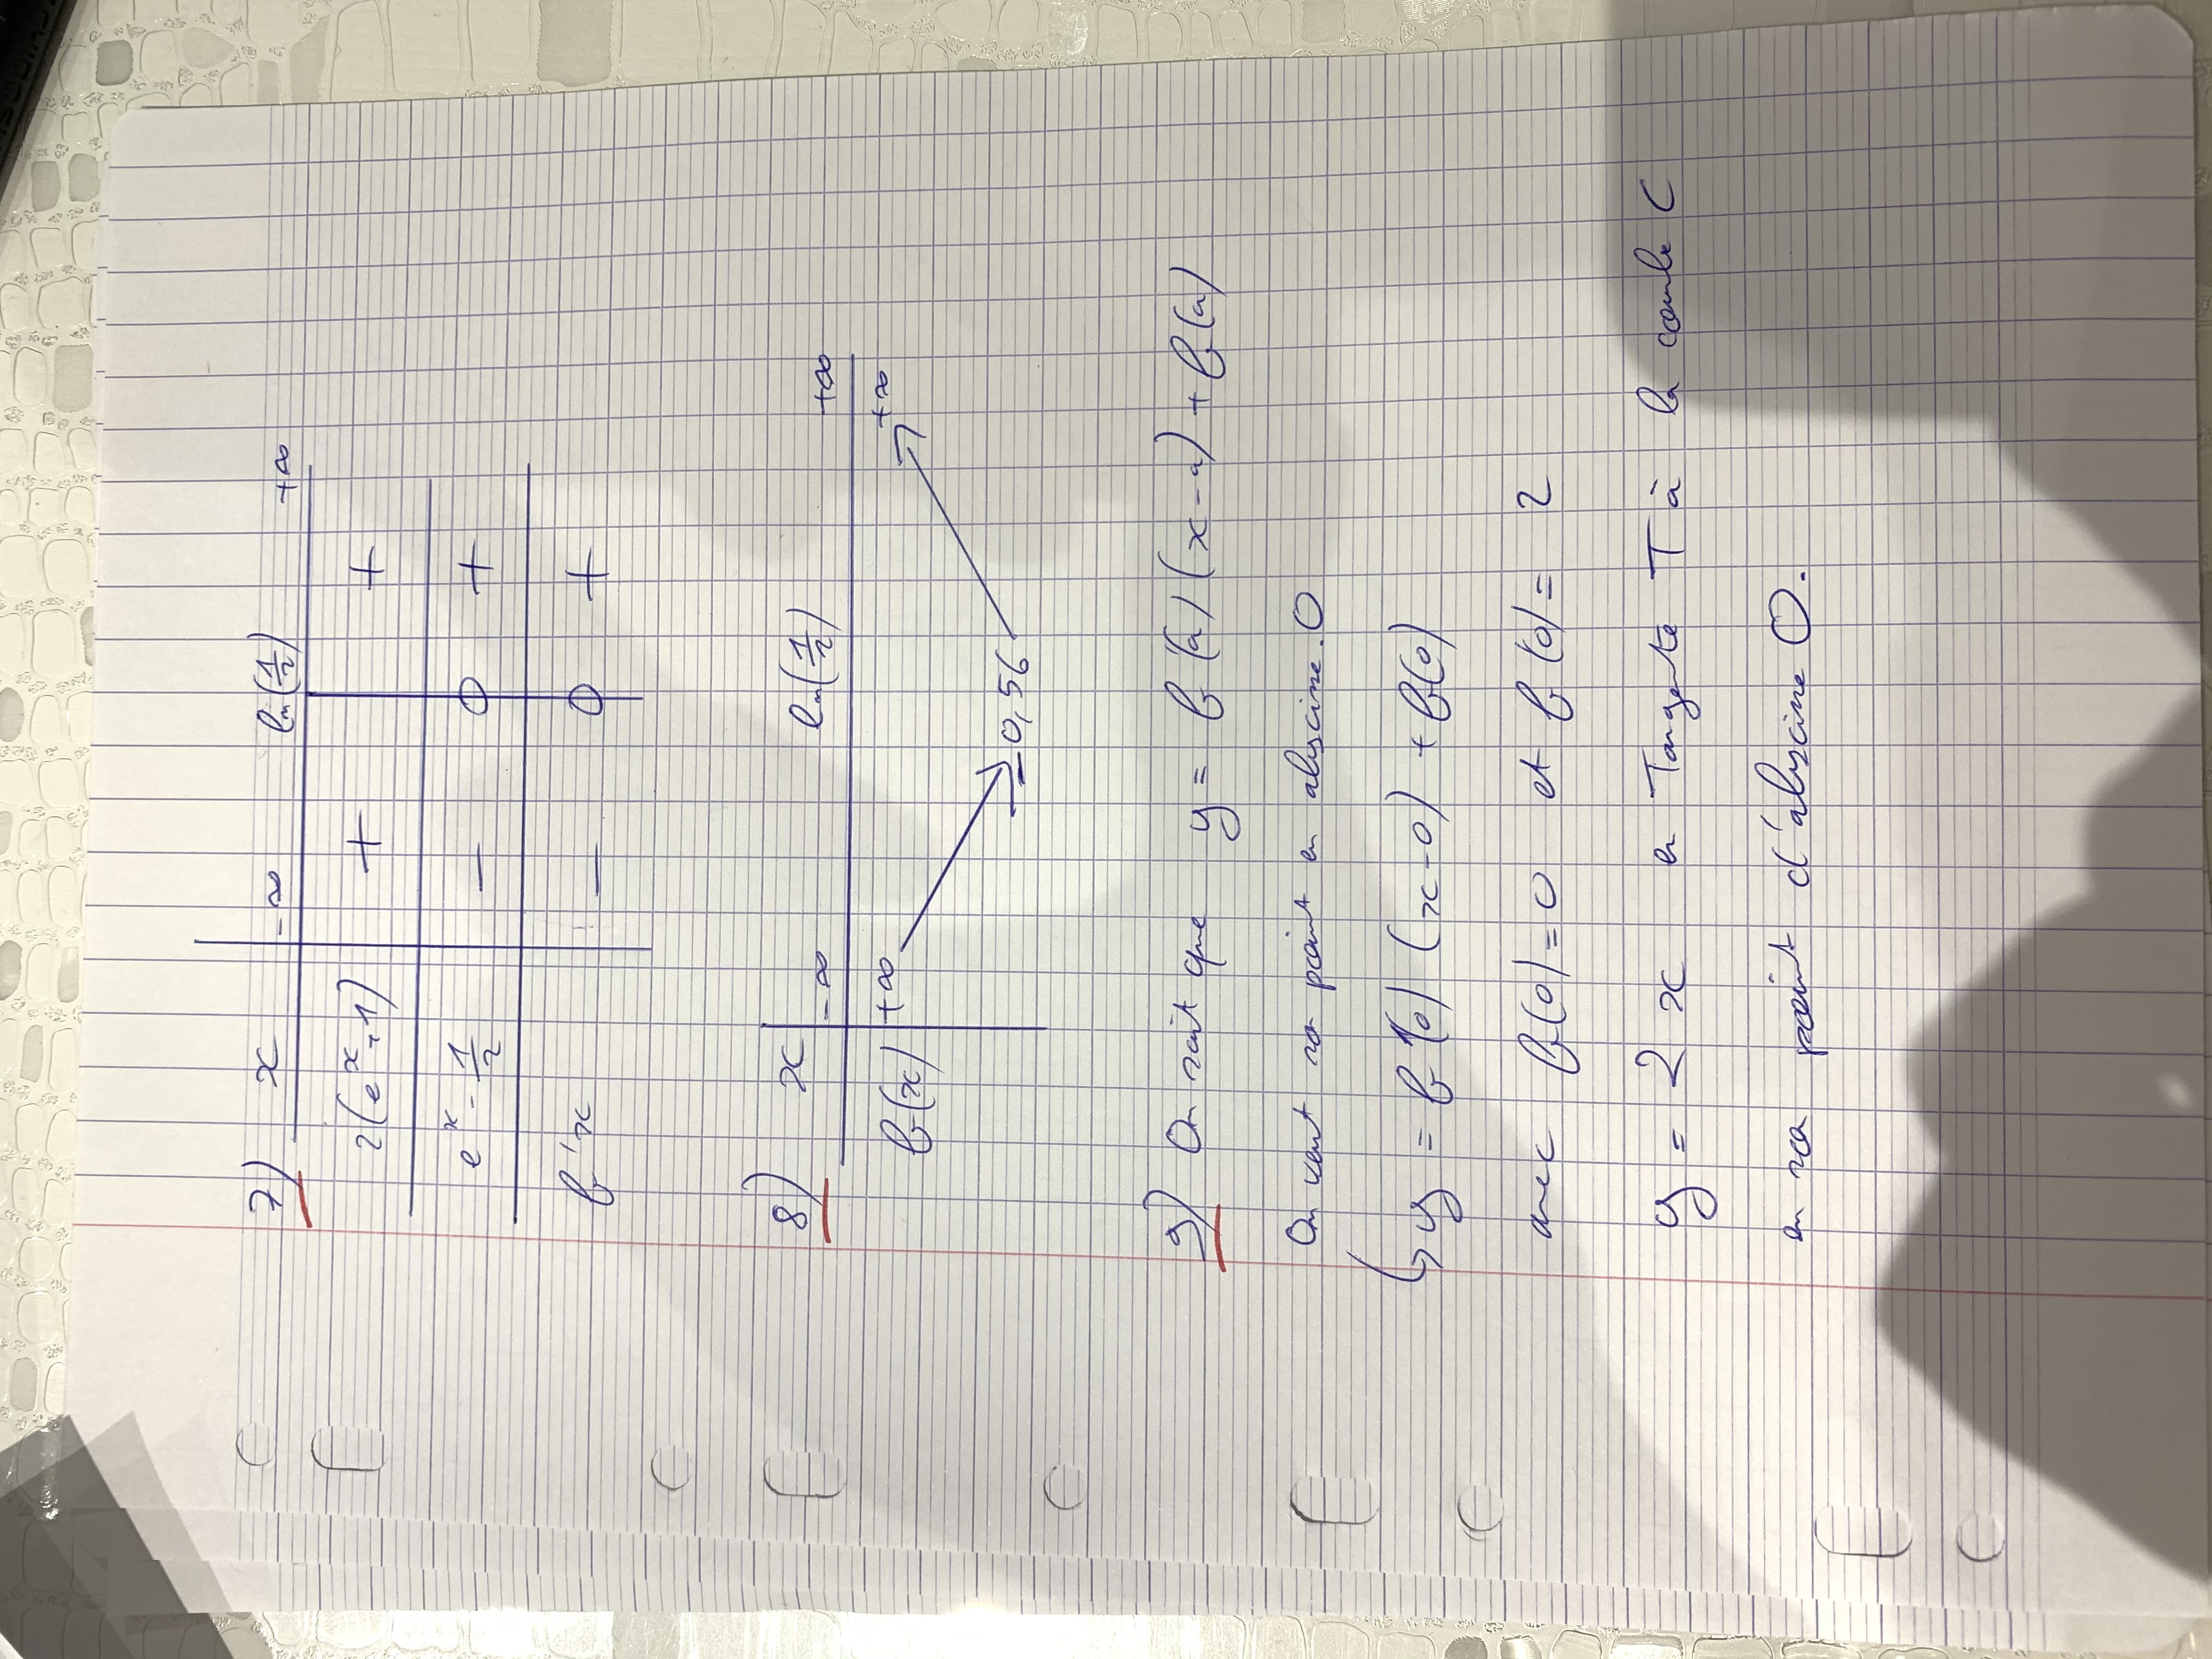 7) x -∞ ln(1/2) +∞
2(e^x+1) + +
e^x - 1/2 - 0 +
f'x - 0 +
8) x -∞ ln(1/2) +∞
f(x) +∞ +∞
-0,56
9) On sait que y = f'(a) (x-a) + f(a)
On veut son point en abscisse. 0
↳ y = f'(0) (x-0) + f(0)
avec f(0) = 0 et f'(0) = 2
y = 2x en Tangente T à la courbe C
en son point d'abscisse 0.